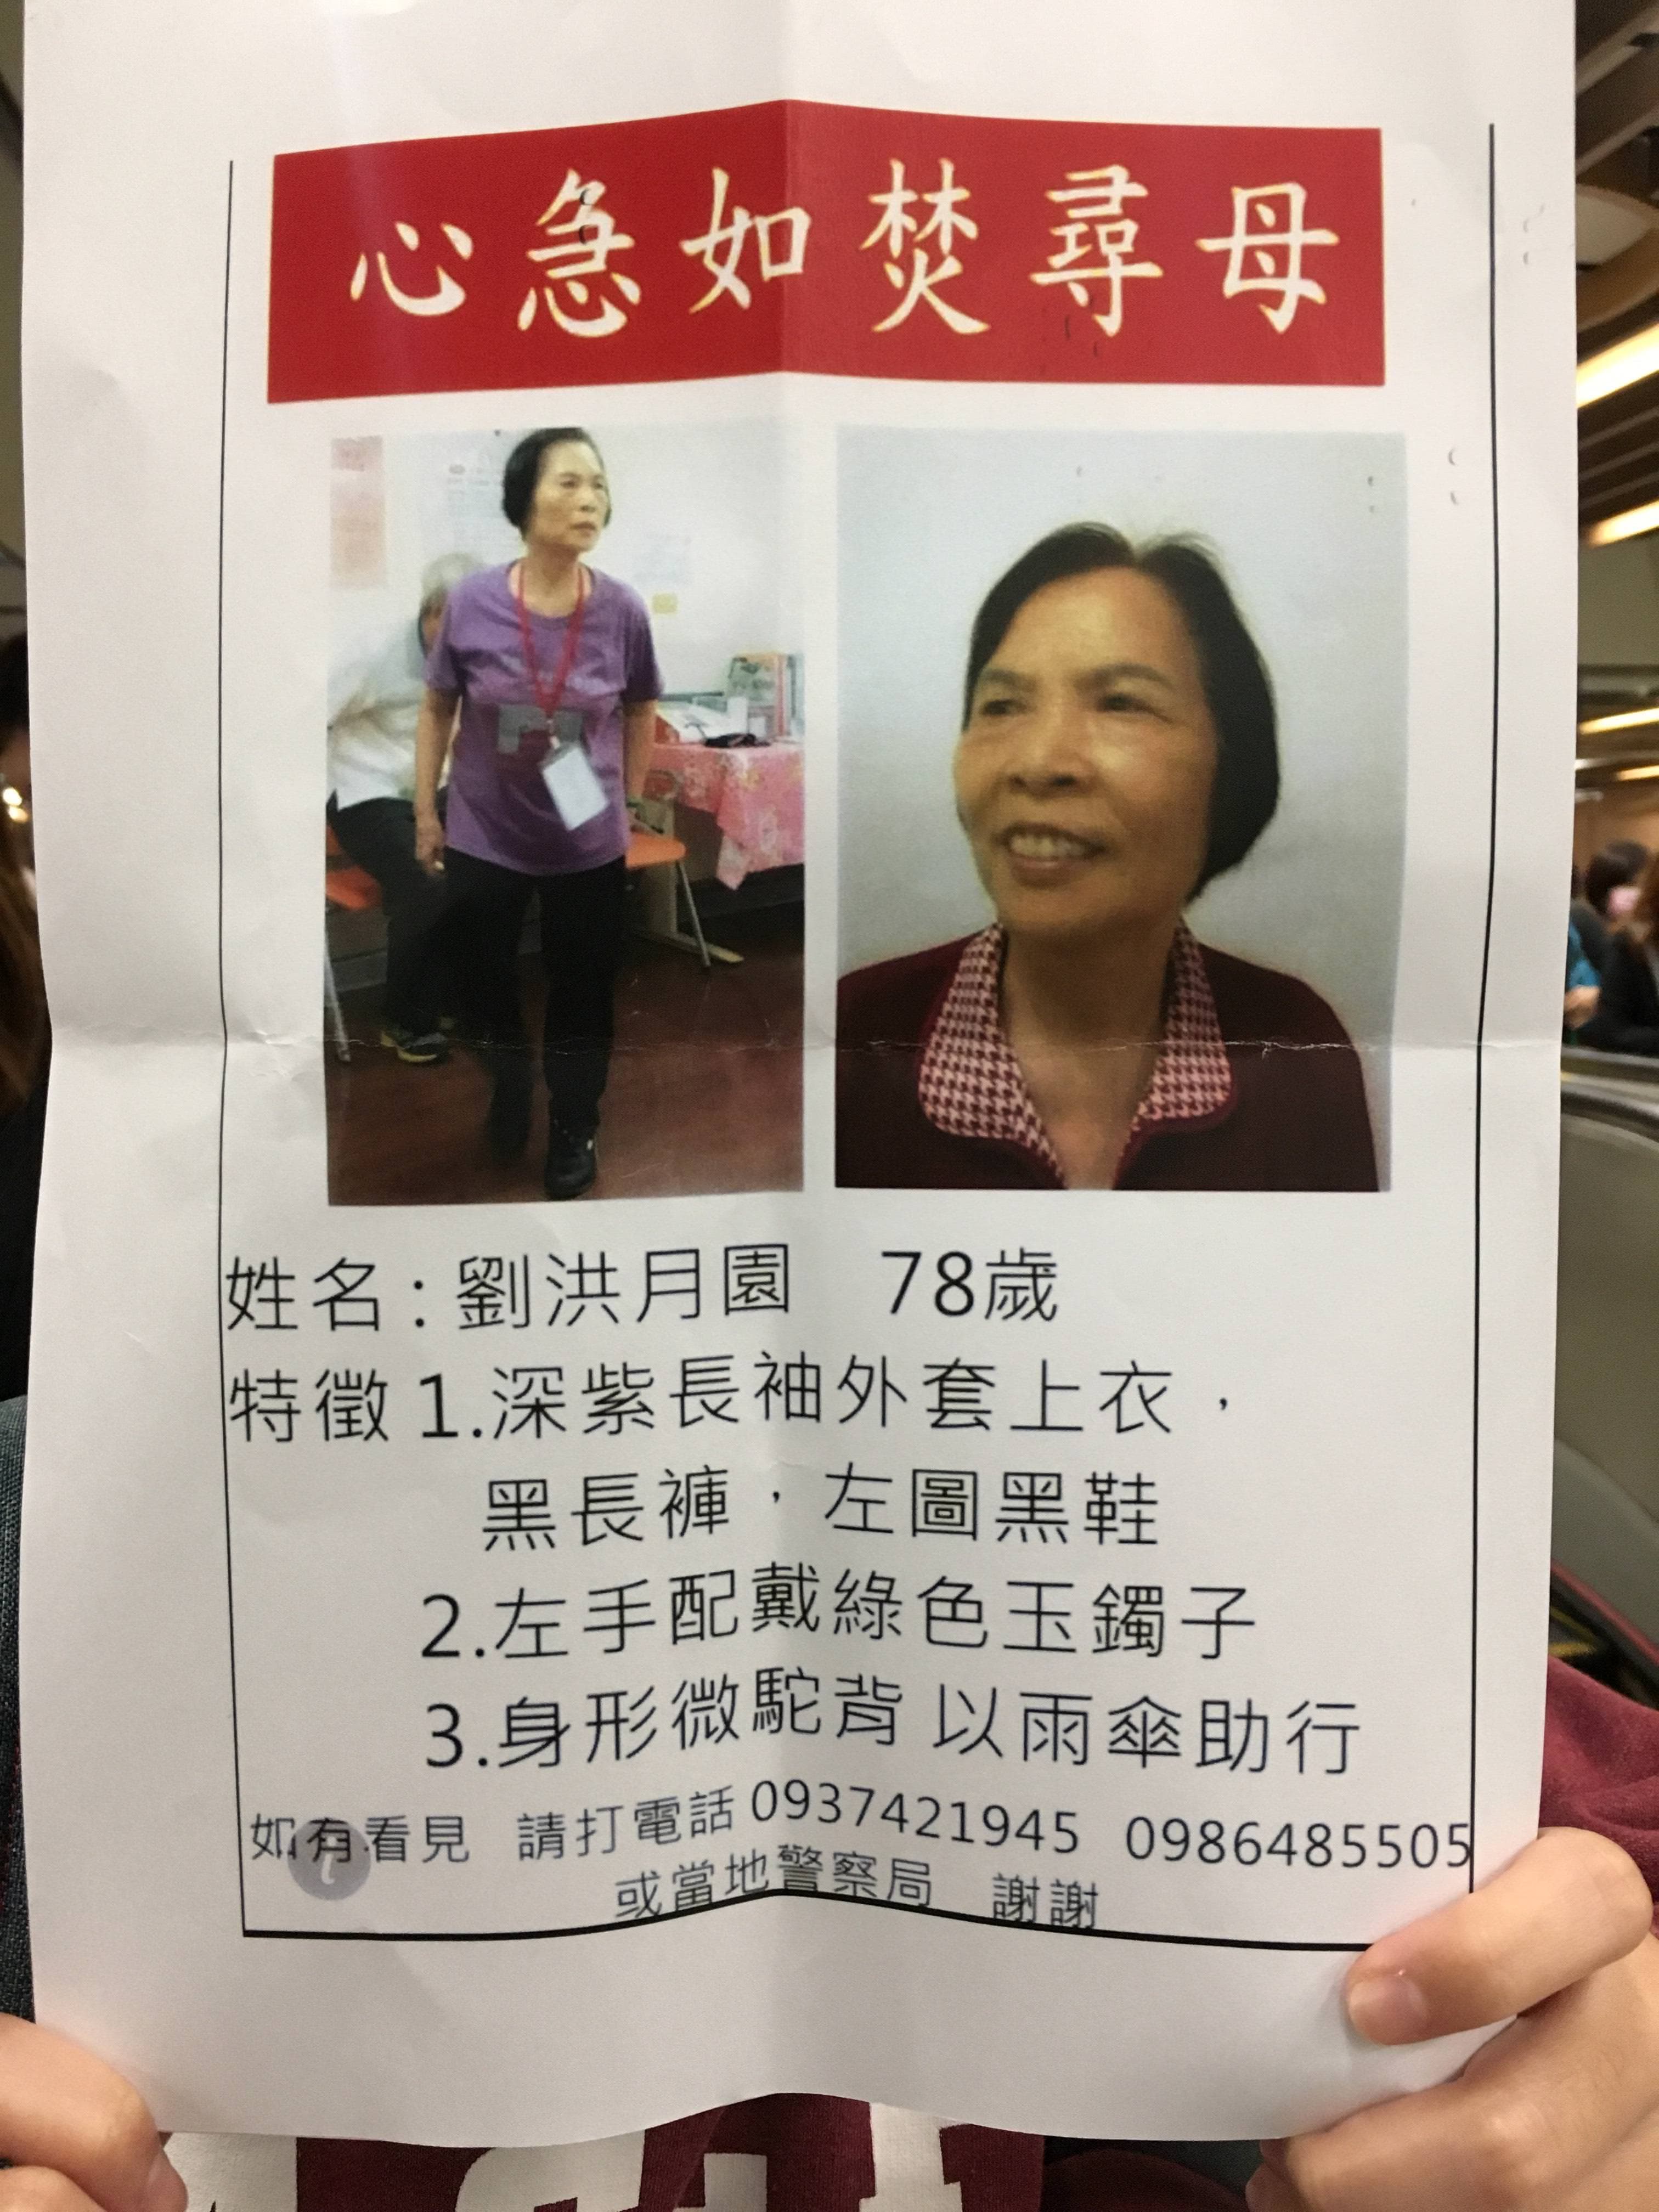 心急如焚尋母
姓名：劉洪月園 78歲
特徵 1.深紫長袖外套上衣，
黑長褲，左圖黑鞋
2.左手配戴綠色玉鐲子
3.身形微駝背 以雨傘助行
如有看見 請打電話 0937421945 0986485505
或當地警察局 謝謝